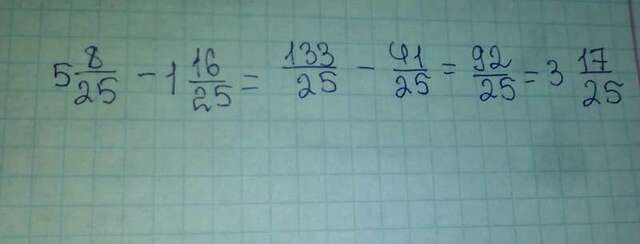 5 8/25 - 1 16/25 = 133/25 - 41/25 = 92/25 = 3 17/25